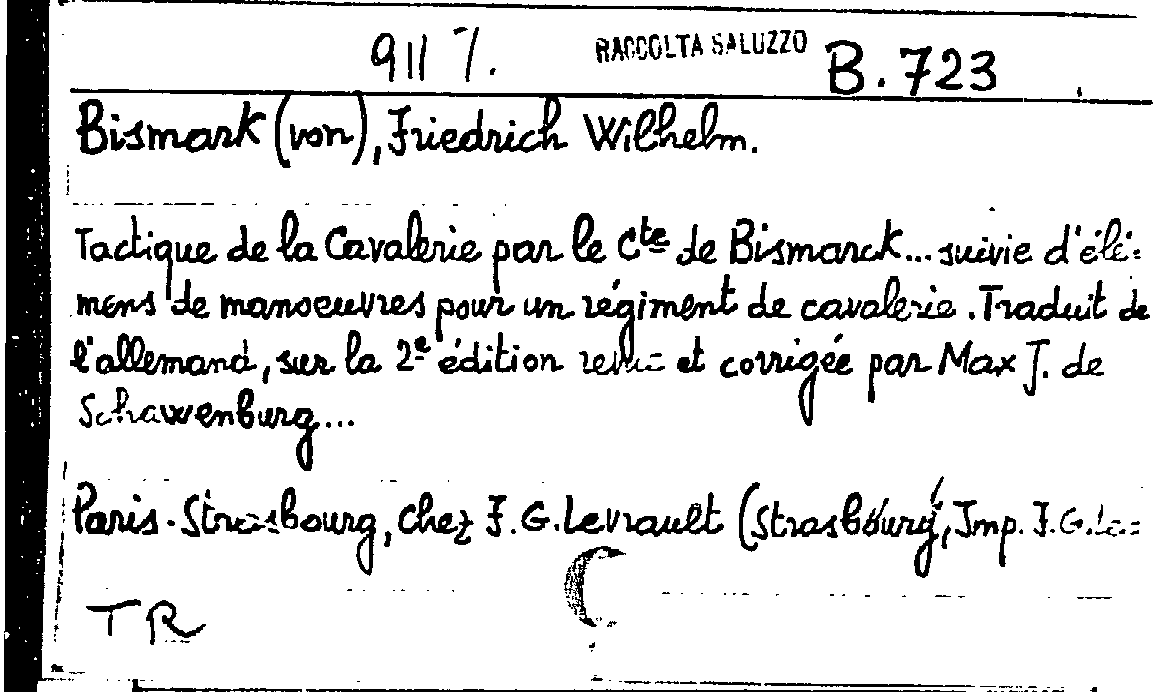 9117. RACCOLTA SALUZZO B.723
Bismark (von), Friedrich Wilhelm.
Tactique de la Cavalerie par le Cte de Bismarck... suivie d'élé=
mens de manoeuvres pour un régiment de cavalerie. Traduit de
l'allemand, sur la 2e édition revue et corrigée par Max J. de
Schawenburg...
Paris-Strasbourg, chez F.G. Levrault (Strasbourg, Imp. F.G. Le=
TR